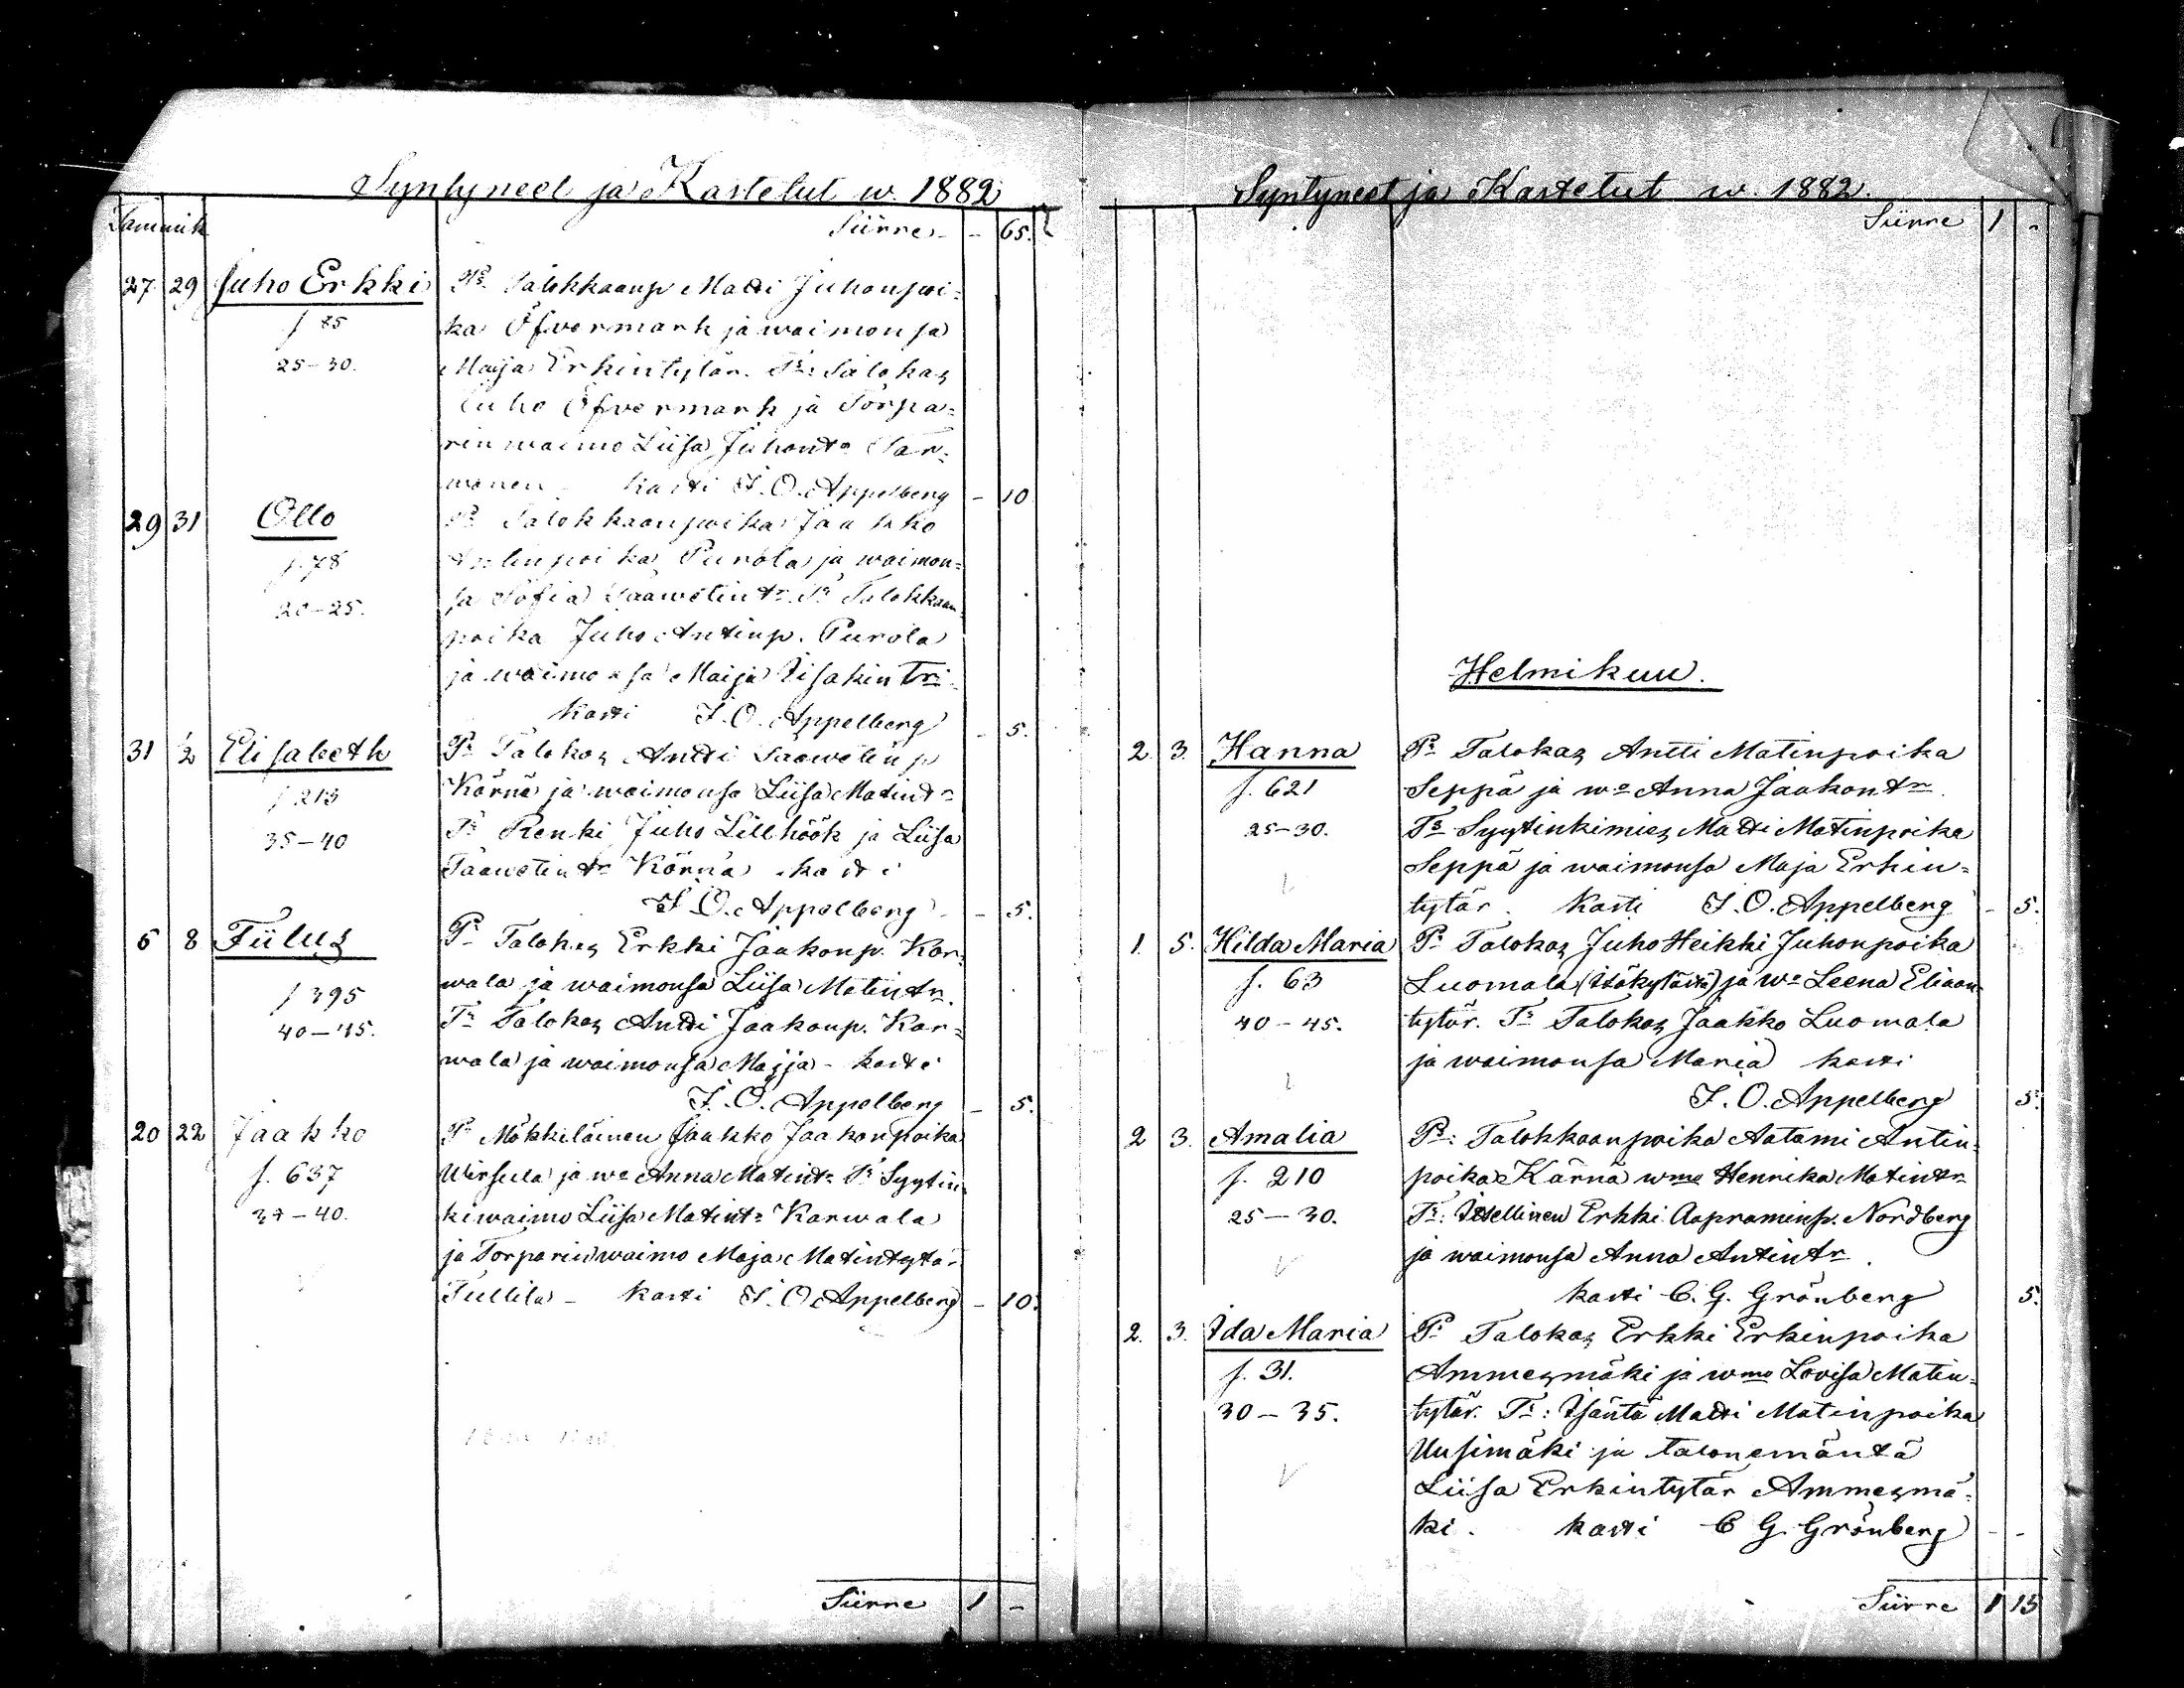 Syntyneet ja Kastetut w. 1882
Tammik
Siirre - - 65.
27 29 Juho Erkki Vr. Talokkaanp Matti Juhonpoi-
f 85 ka Öfvermark ja waimonsa
25-30. Maija Erkintytär. Tr: Talokas
Juho Öfvermark ja Torpa-
rin waimo Liisa Juhontr Tar-
wonen - kasti J. O. Appelberg - 10
29 31 Otto Vr Talokkaanpoika Jaakko
f. 78 Antinpoika Purola ja waimon-
20-25. sa Sofia Taawetintr. Tr Talokkaan
poika Juho Antinp. Purola
ja waimonsa Maija Iisakintr
kasti J. O. Appelberg - 5.
31 1/2 Elisabeth Vr Talokas Antti Taawetinp
f 213 Kärnä ja waimonsa Liisa Matintr
35-40 Tr Renki Juho Lillhöök ja Liisa
Taawetintr Kärnä kasti
J. O. Appelberg - 5.
6 8 Fiilus Vr Talokas Erkki Jaakonp. Kar-
f 395 wala ja waimonsa Liisa Matintr.
40-45. Tr Talokas Antti Jaakonp. Kar-
wala ja waimonsa Maija - kasti
J. O. Appelberg - 5.
20 22 Jaakko Vr Mökkiläinen Jaakko Jaakonpoika
f. 637 Wirsula ja wo Anna Matintr Tr Syytin-
37-40. kiwaimo Liisa Matintr Karwala
ja Torparin waimo Maja Matintytä-
Tullila - kasti J. O. Appelberg - 10.
Siirre 1 -
Syntyneet ja Kastetut w. 1882.
Siirre 1 -
Helmikuu.
2. 3. Hanna Vr Talokas Antti Matinpoika
f. 621 Seppä ja wo Anna Jaakontr.
25-30. Tr Syytinkimies Matti Matinpoika
Seppä ja waimonsa Maja Erkin-
tytär. kasti J. O. Appelberg - 5.
1. 5. Hilda Maria Vr Talokas Juho Heikki Juhonpoika
f. 63 Luomala (Isökylästä) ja wo Leena Eliaan-
40-45. tytär. Tr Talokas Jaakko Luomala
ja waimonsa Maria kasti
J. O. Appelberg 5.
2 3. Amalia Vr: Talokkaanpoika Aatami Antin-
f. 210 poika Kärnä wmo Henrika Matintr
25-30. Tr: Itsellinen Erkki Aapraminp. Nordberg
ja waimonsa Anna Antintr.
kasti C. G. Grönberg 5.
2. 3. Ida Maria Vr Talokas Erkki Erkinpoika
f. 31. Ammesmäki ja wmo Lovisa Matin-
30-35. tytär. Tr: Isäntä Matti Matinpoika
Uusimäki ja talonemäntä
Liisa Erkintytär Ammesmä-
ki. kasti C G. Grönberg - -
Siirre 1 15